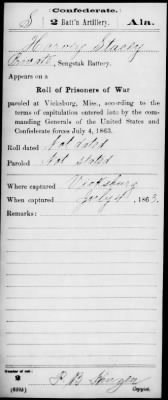 Confederate.
S | 2 Batt'n Artillery. | Ala.
Harvey Stacey
Private, Sengstak Battery.
Appears on a
Roll of Prisoners of War
paroled at Vicksburg, Miss., according to the
terms of capitulation entered into by the com-
manding Generals of the United States and
Confederate forces July 4, 1863.
Roll dated Not dated
Paroled Not stated
Where captured Vicksburg
When captured July 4, 1863.
Remarks:
Number of roll:
9
P. B.
Copyist.